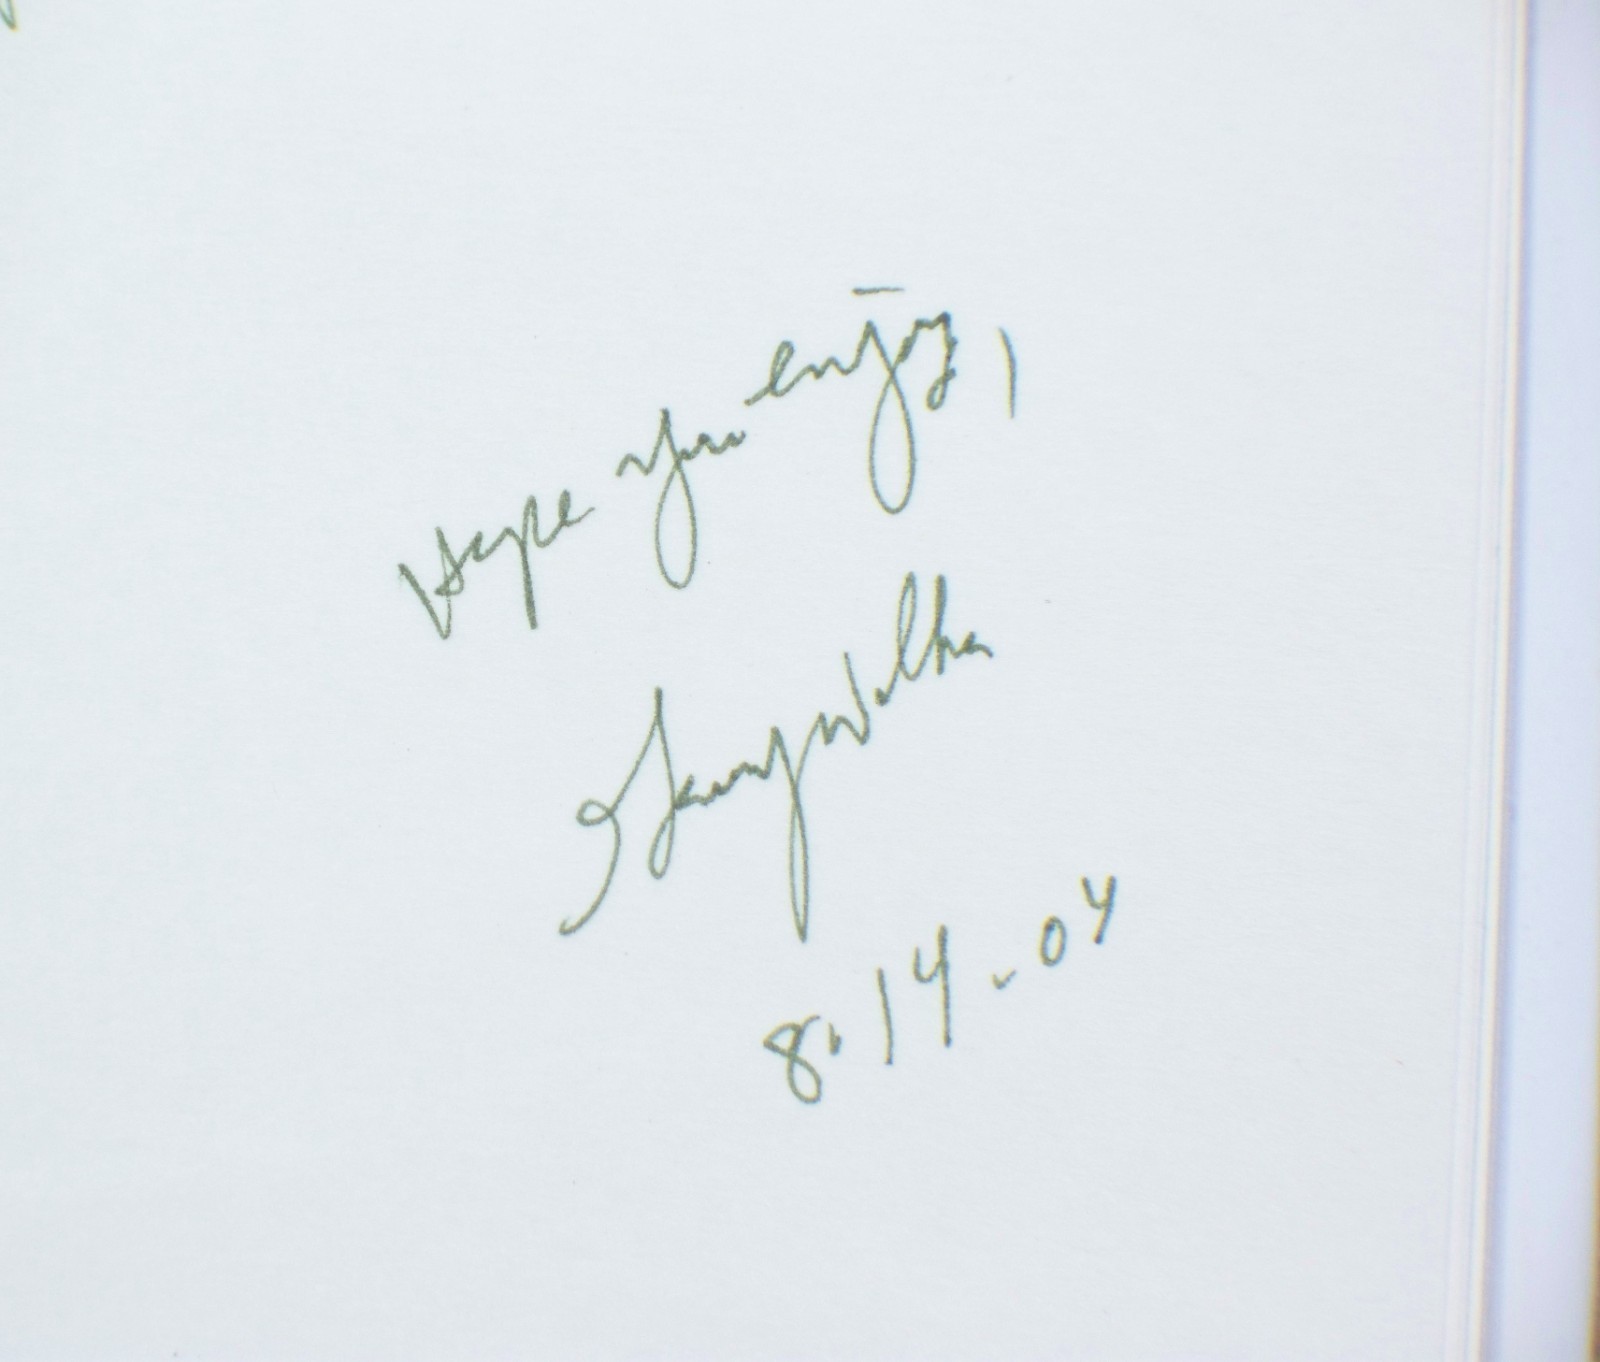 Hope you enjoy,
Walker
8.14.04